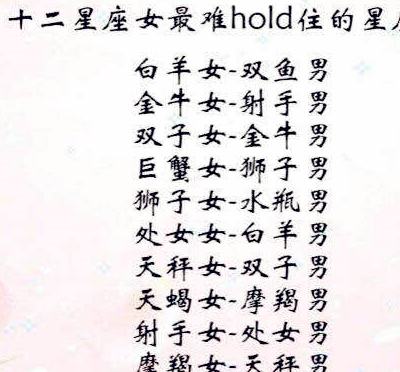 十二星座女最难hold住的星
白羊女-双鱼男
金牛女-射手男
双子女-金牛男
巨蟹女-狮子男
狮子女-水瓶男
处女女-白羊男
天秤女-双子男
天蝎女-摩羯男
射手女-处女男
摩羯女-天秤男